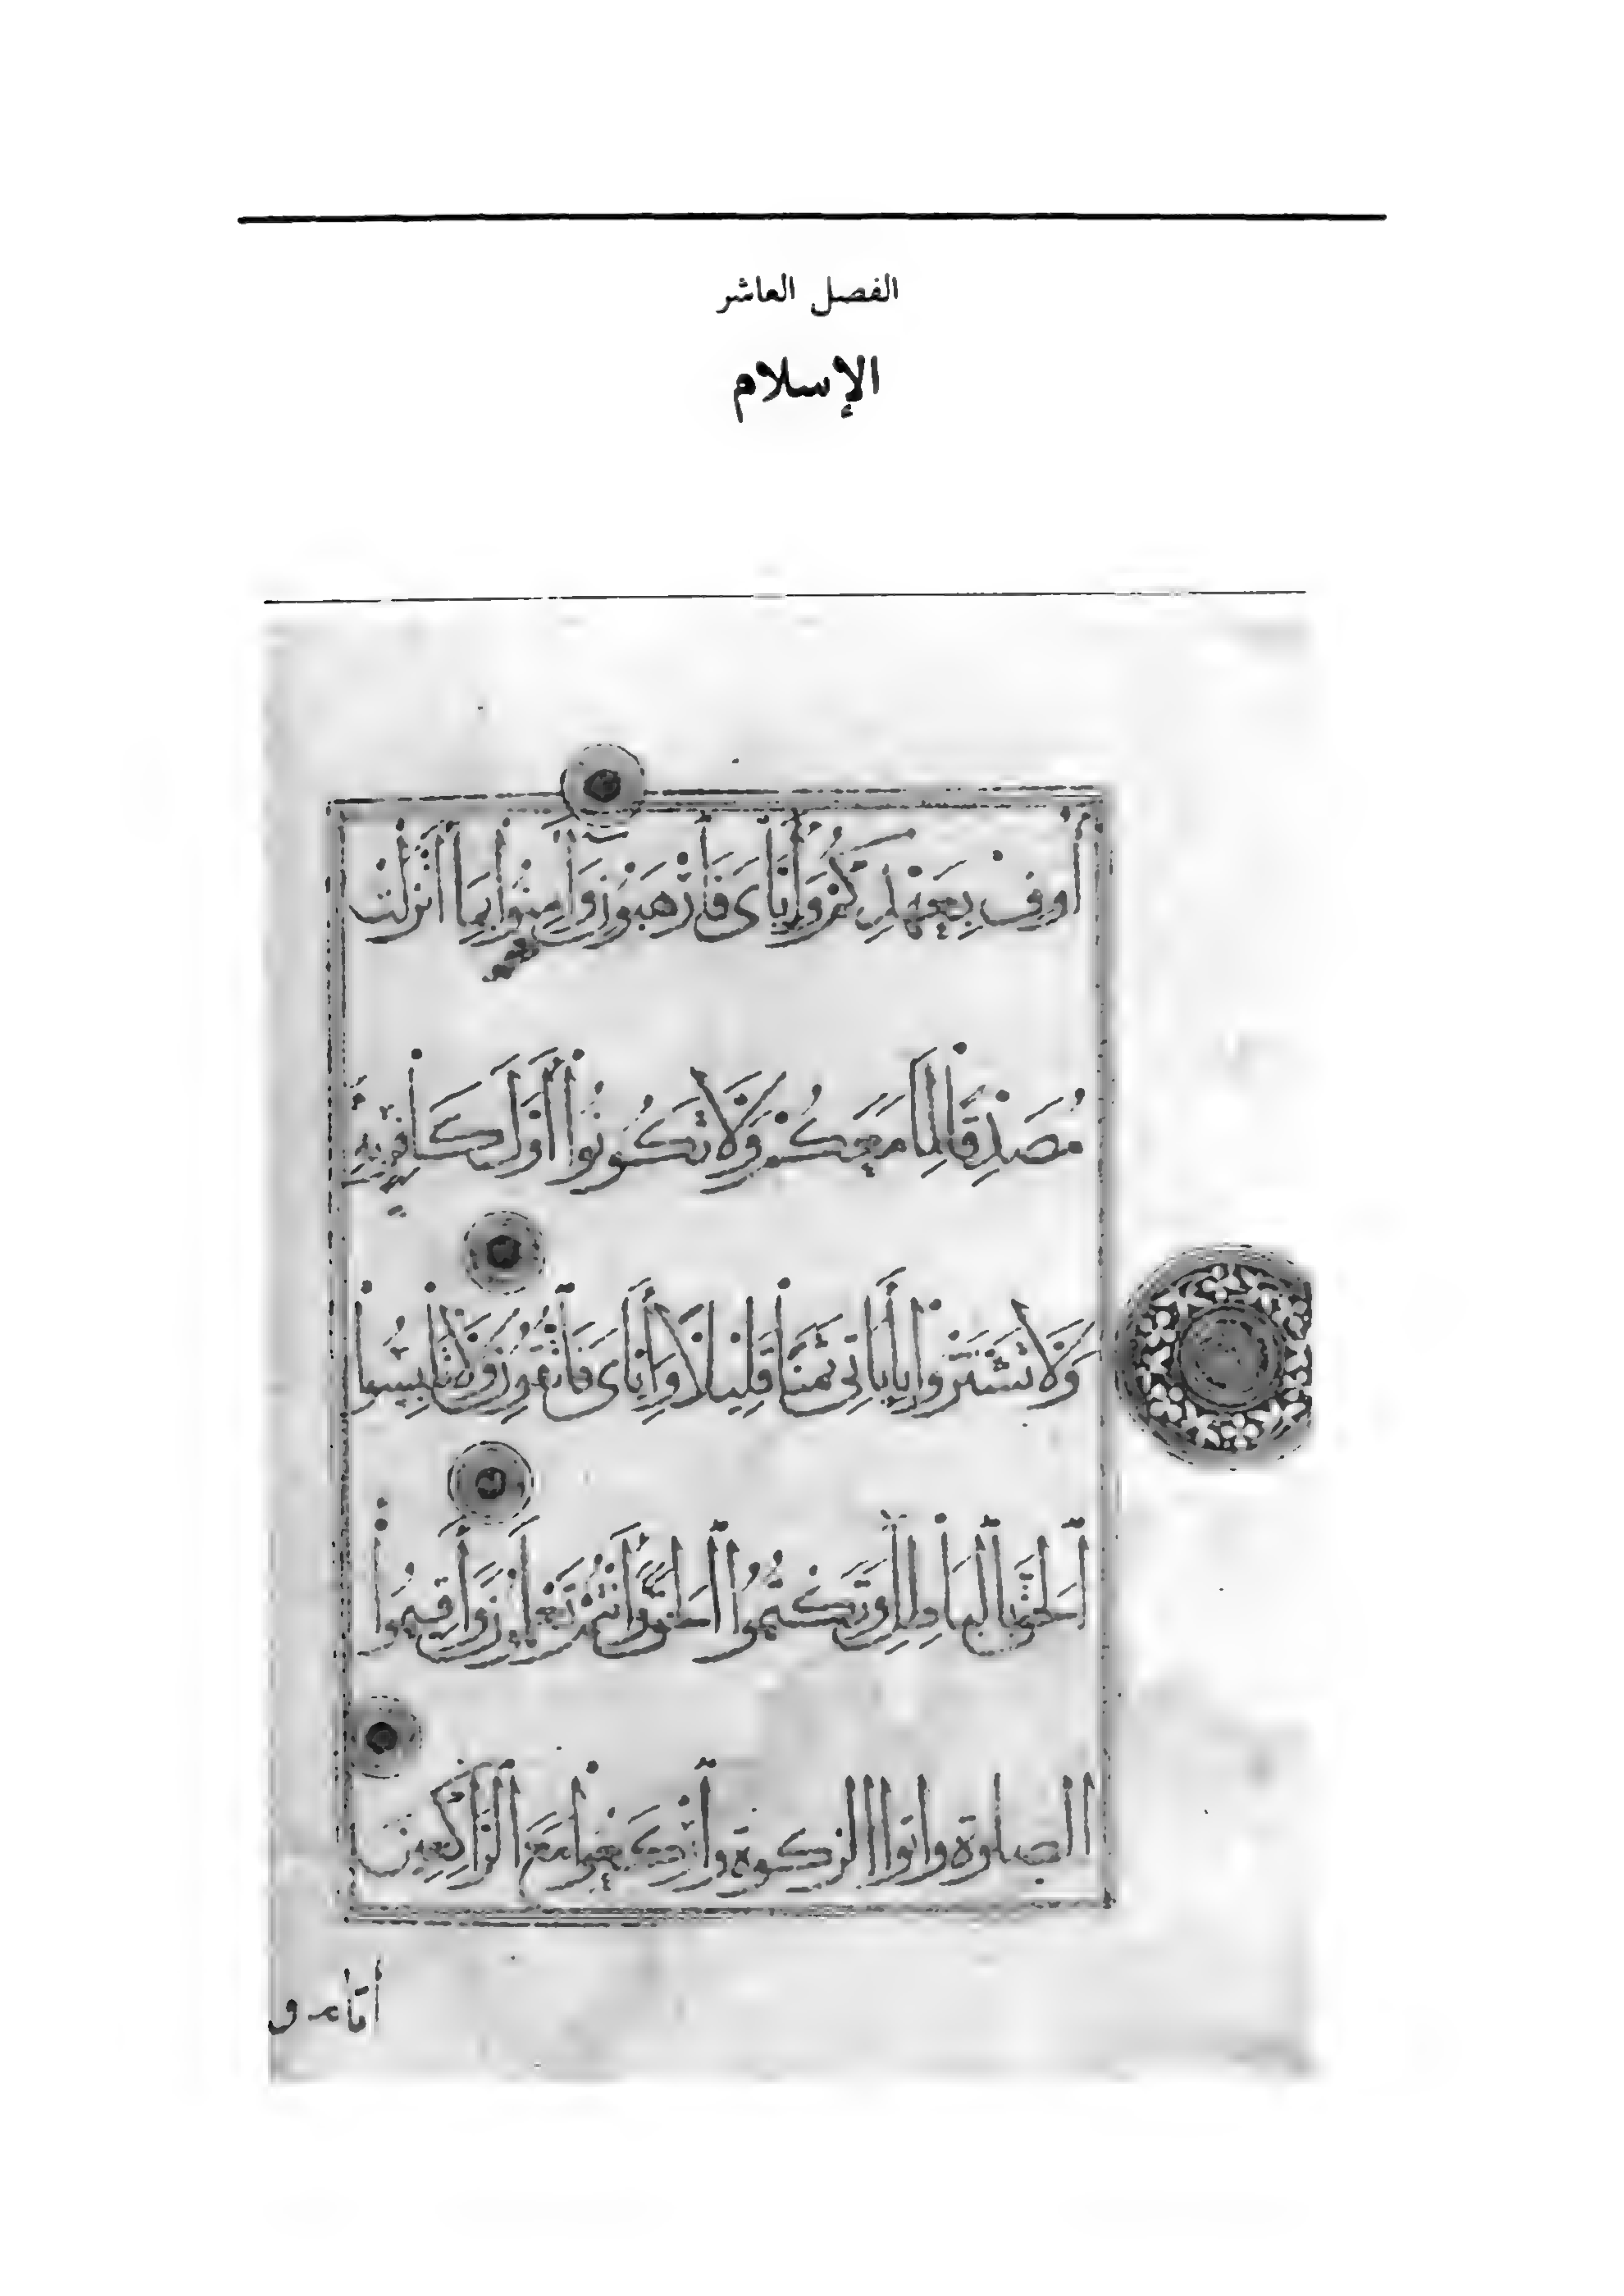 الفصل العاشر
الإسلام
أُوفِ بِعَهْدِكُمْ وَإِيَّايَ فَارْهَبُونِ وَآمِنُوا بِمَا أَنْزَلْتُ
مُصَدِّقًا لِمَا مَعَكُمْ وَلَا تَكُونُوا أَوَّلَ كَافِرٍ بِهِ
وَلَا تَشْتَرُوا بِآيَاتِي ثَمَنًا قَلِيلًا وَإِيَّايَ فَاتَّقُونِ وَلَا تَلْبِسُوا
ٱلْحَقَّ بِالْبَاطِلِ وَتَكْتُمُوا ٱلْحَقَّ وَأَنْتُمْ تَعْلَمُونَ وَأَقِيمُوا
الصلوة واتوا الزكوة وٱرْكَعُوا مَعَ ٱلرَّاكِعِينَ